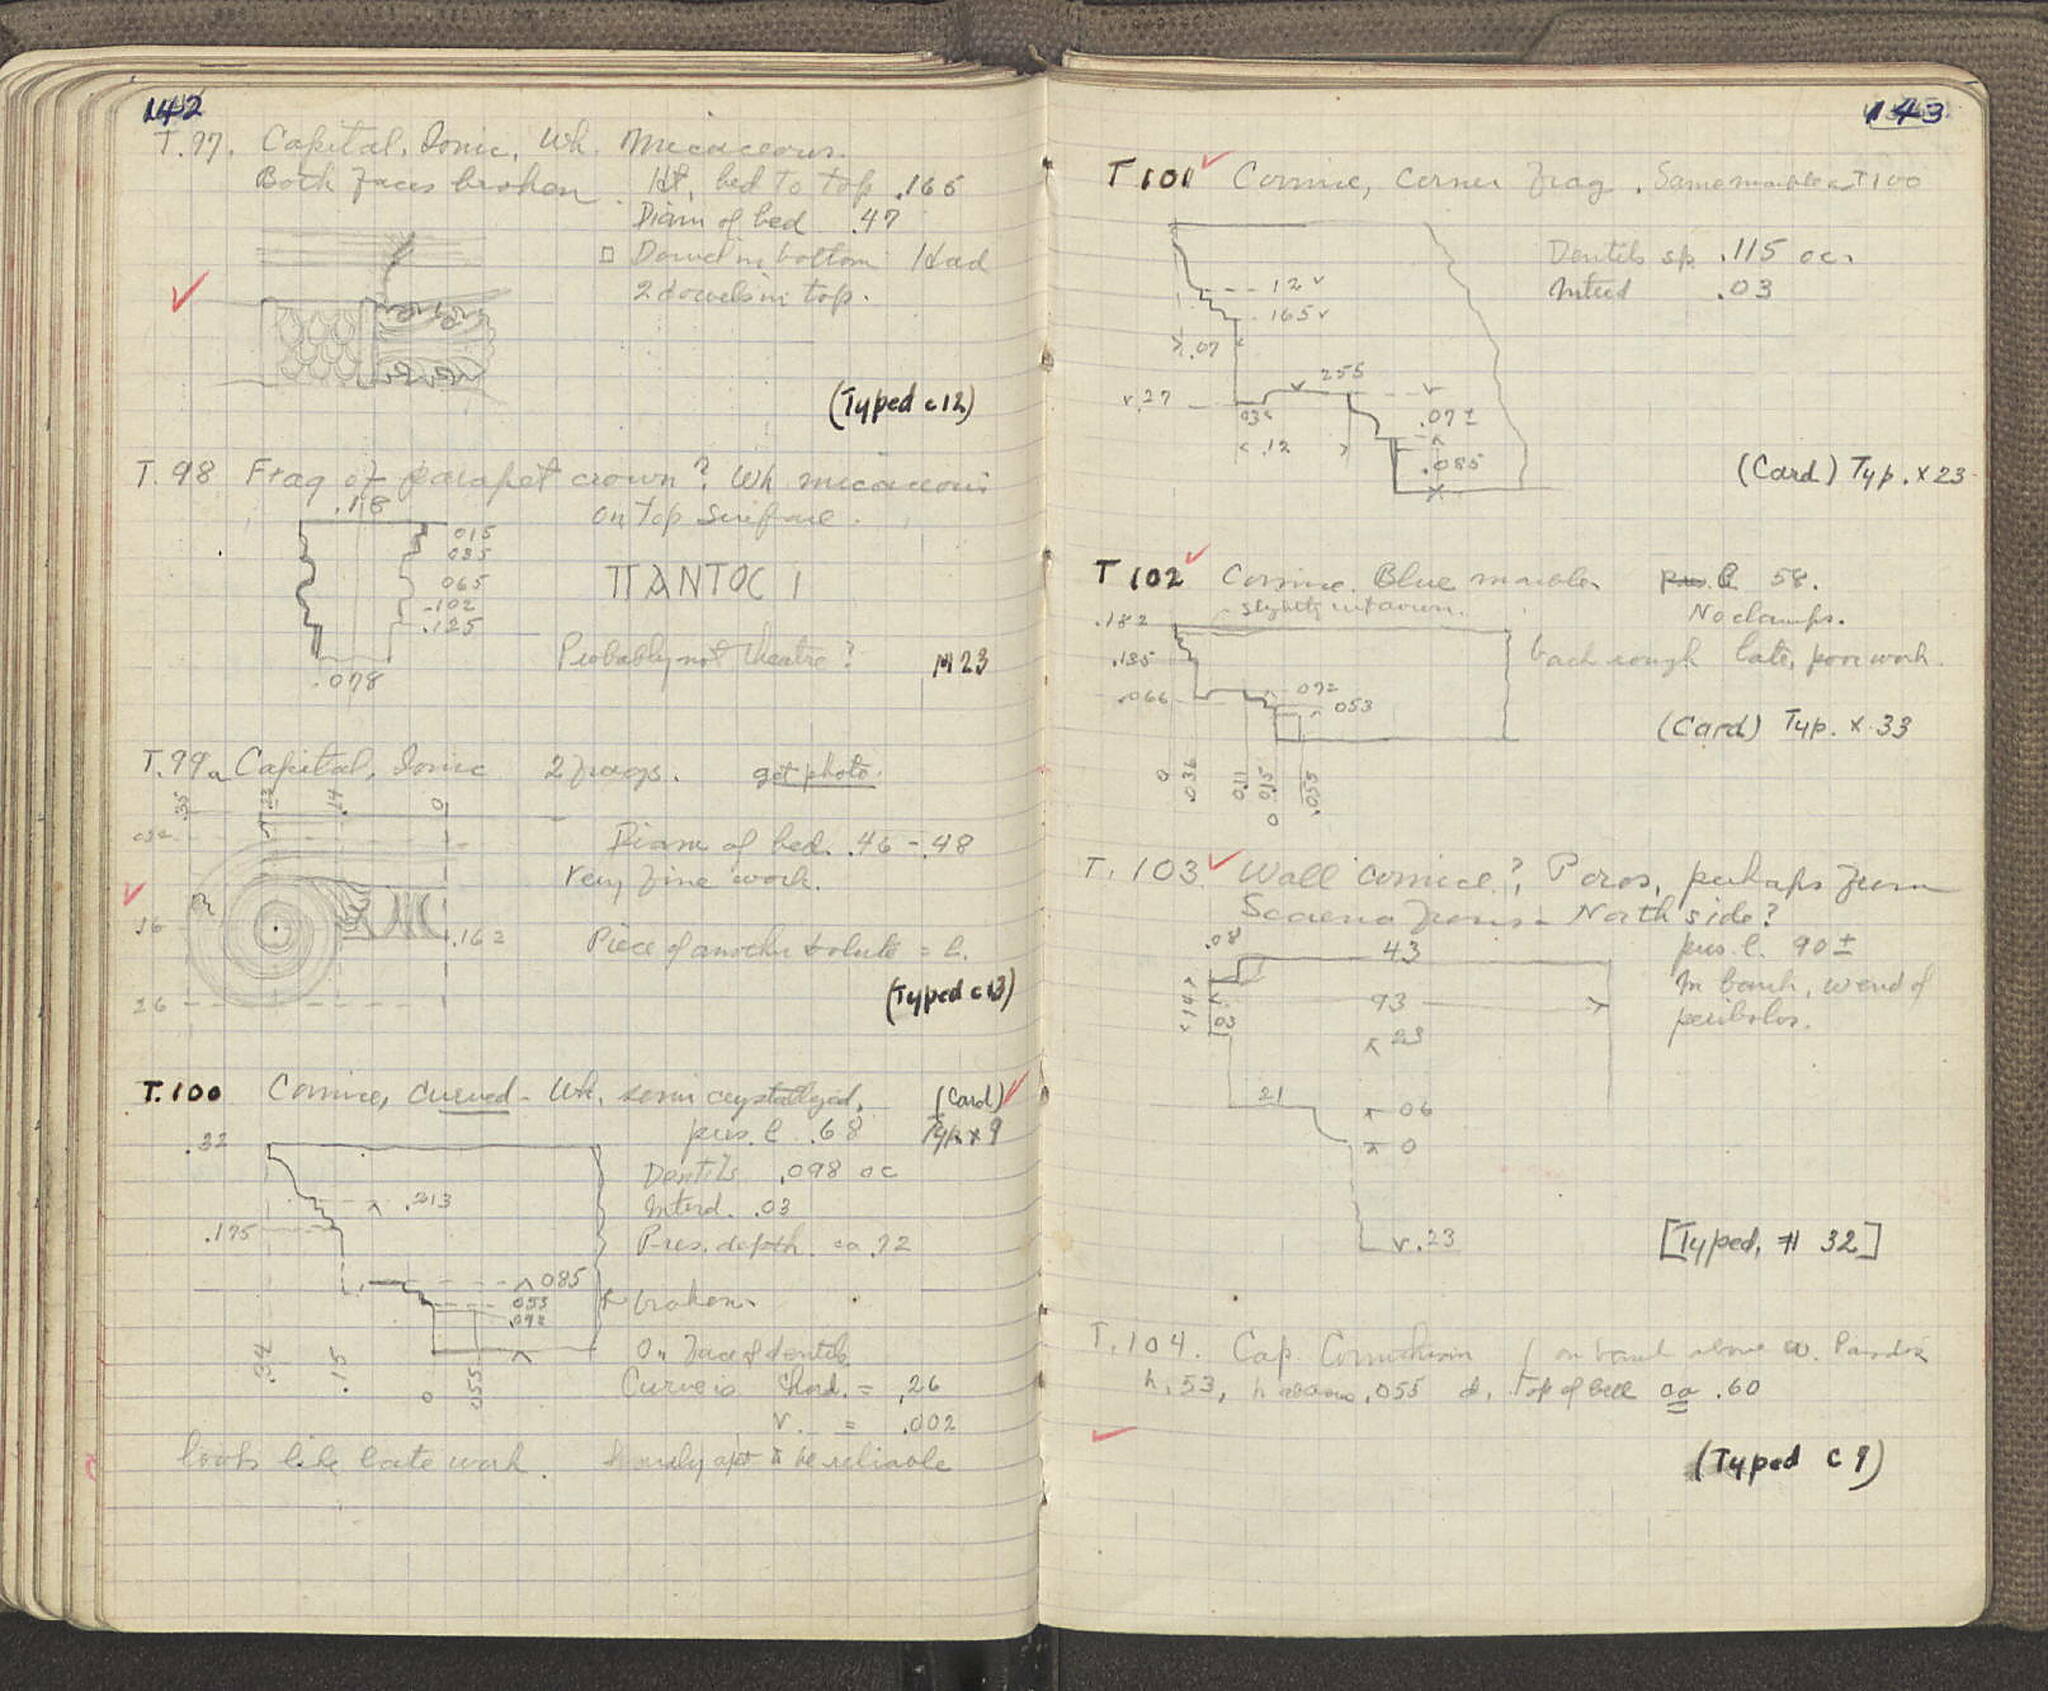 142
T.97. Capital, Ionic, Wh. Micaceous.
Both faces broken. Ht, bed to top .165
Diam of bed .47
Dowel in bottom Had
2 dowels in top.
(Typed c12)
T.98 Frag of parapet crown? Wh micaceous
.18
on top surface.
.015
.035
.065
.102
.125
ΠΑΝΤΟC Ι
Probably not theatre? M23
.078
T.99a Capital, Ionic 2 frags. get photo.
.35 .23 .14 0
.032
Diam of bed. .46 - .48
Very fine work.
.16
.162
Piece of another volute = L.
.26
(Typed c13)
T.100 Cornice, curved - Wh, semi crystallized, (Card)
pres. l. .68 Typ. x 9
.32
Dentils .098 oc
.213
Interd. .03
.175
Pres. depth ca .72
.085
.053
.042
broken.
.34 .15 0 .055
On face of dentils
Curve is Chord. = .26
v. = .002
looks like late work. hardly apt to be reliable
143
T 101 Cornice, corner frag. Same marble as T100
Dentils sp .115 oc.
Interd .03
.12
.165
.07
.255
.27
.03
.07±
.12
.085
(Card) Typ. x 23
T 102 Cornice. Blue marble l. 58.
slightly
No clamps.
.182
.135
back rough late, poor work.
.066
.072
.053
(Card) Typ. x 33
0 .036 .011 0 .015 .055
T. 103 Wall cornice?, Poros, perhaps from
Scaena frons - North side?
.08
43
pres. l. 90±
In bank, w end of
peribolos.
.14
.03
93
23
21
06
0
.23
[Typed, # 32]
T. 104. Cap. Corinthian (on bank above w. Parodos
h. .53, h abacus .055 d. top of bell ca .60
(Typed c 9)